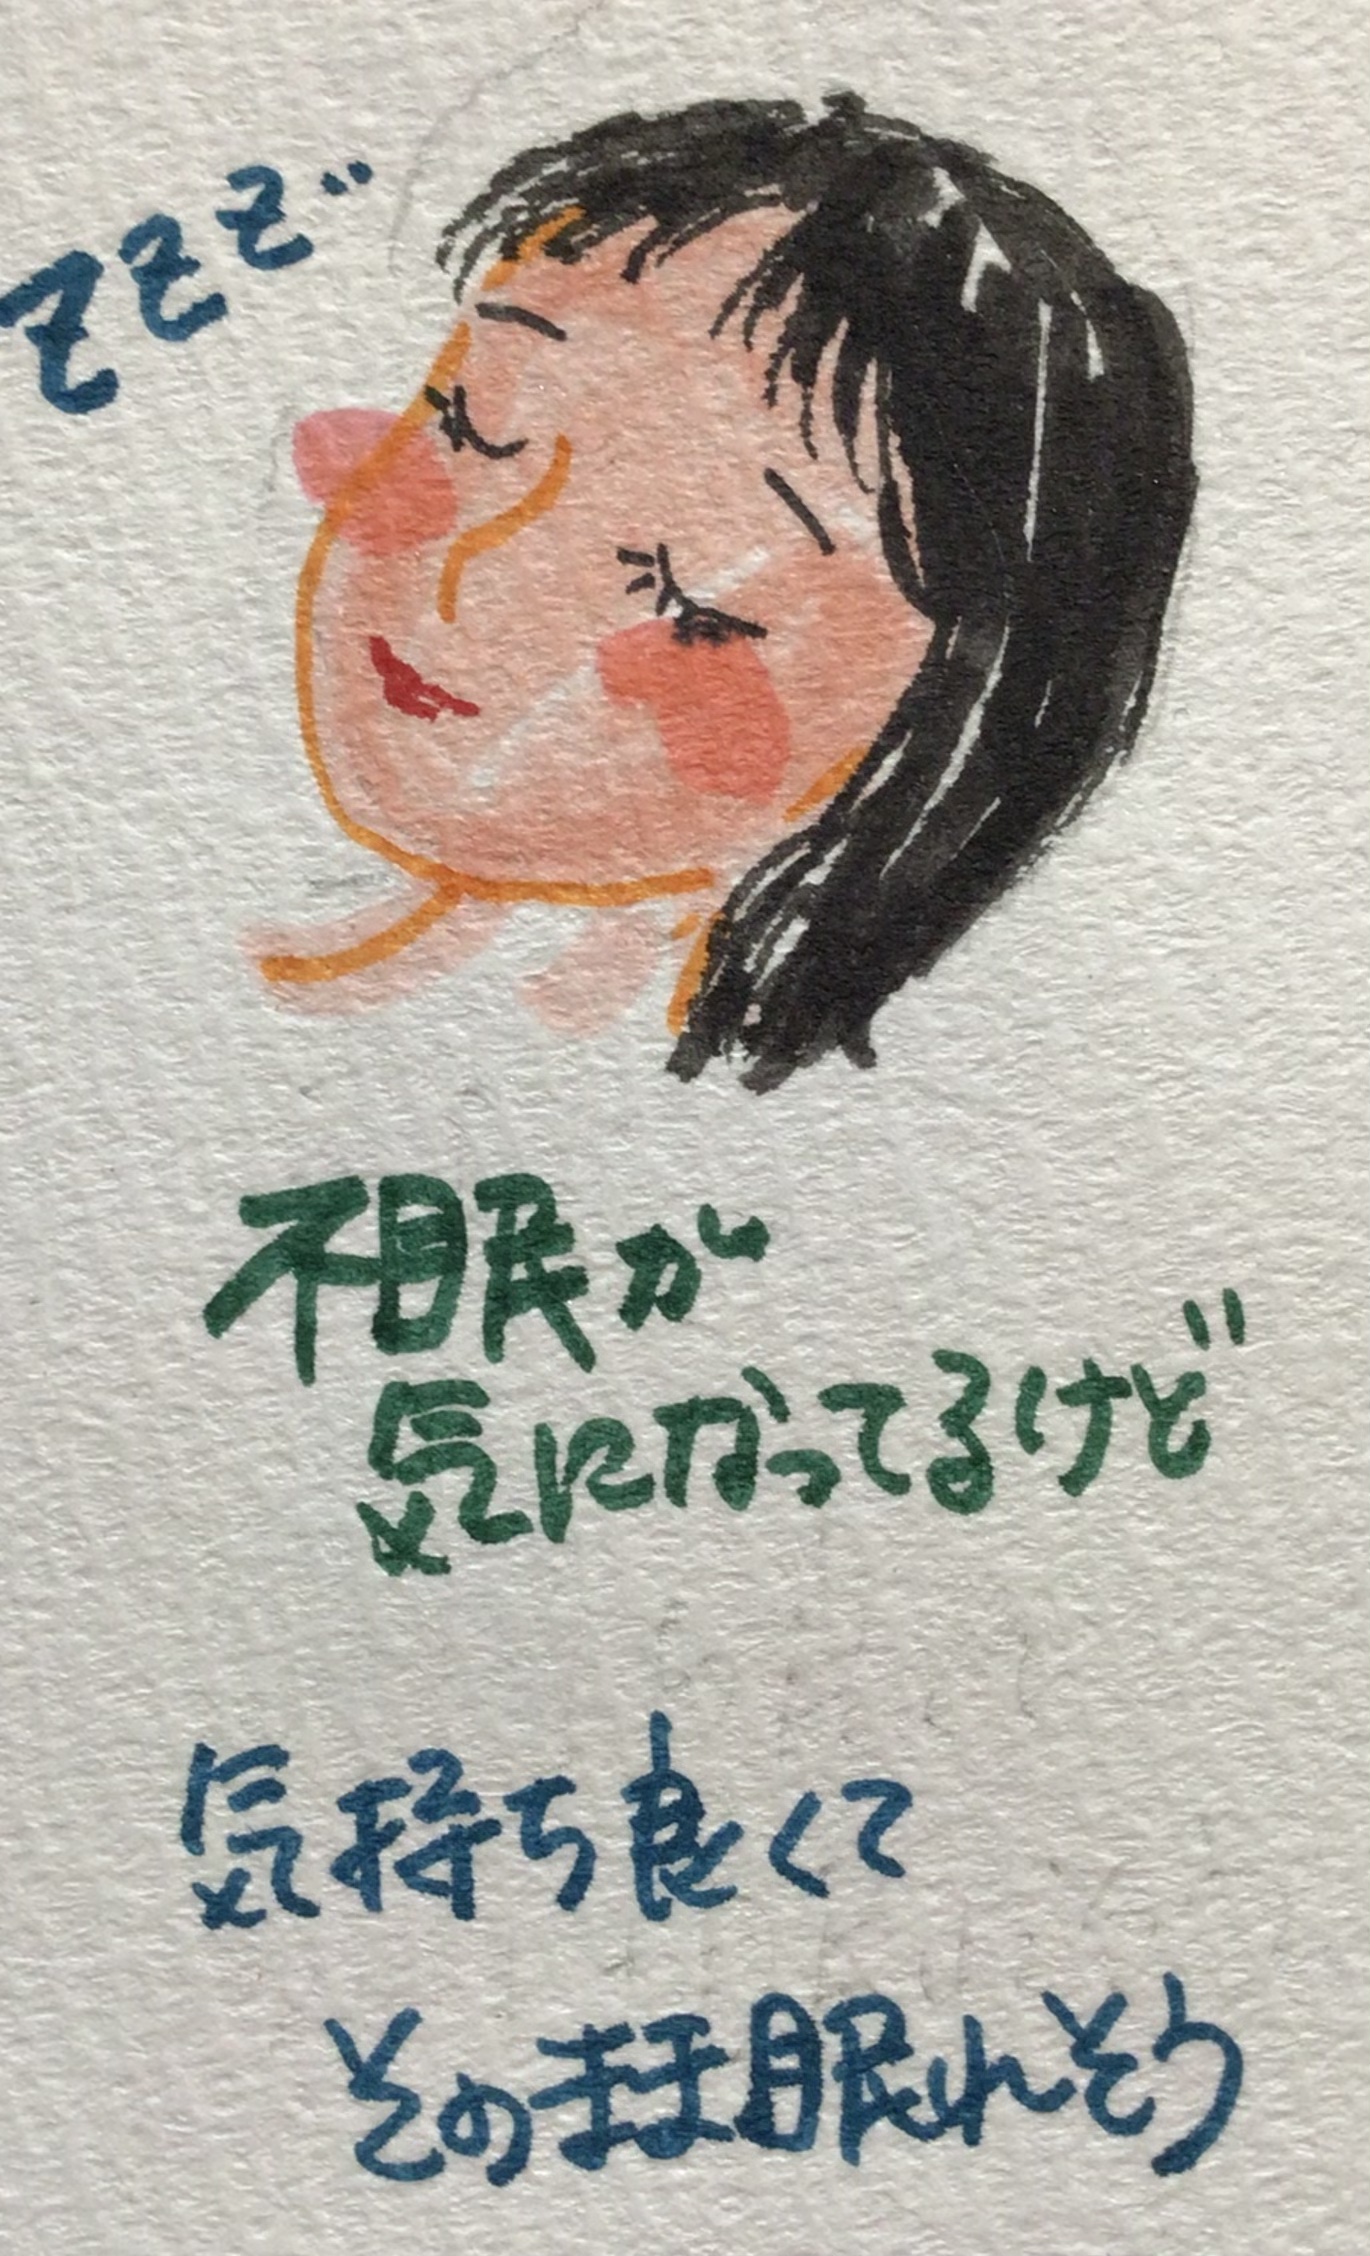 zzz゛
不眠が
気になってるけど
気持ち良くて
そのまま眠れそう